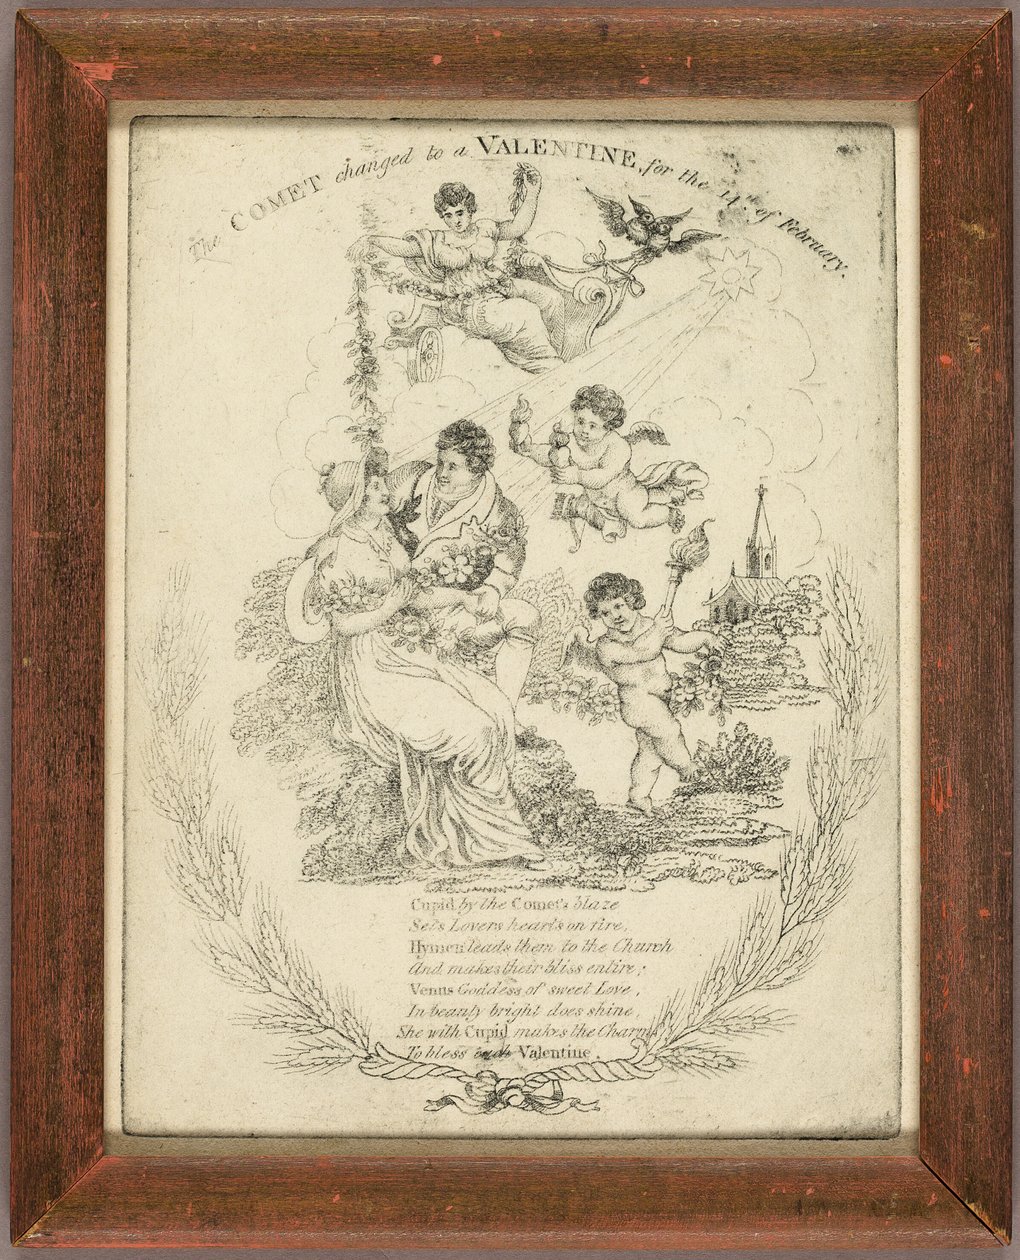 The COMET changed to a VALENTINE, for the 14th of February.
Cupid by the Comet's blaze
Sets Lovers hearts on fire,
Hymen leads them to the Church
And makes their bliss entire;
Venus Goddess of sweet Love,
In beauty bright does shine,
She with Cupid makes the Charm
To bless each Valentine.